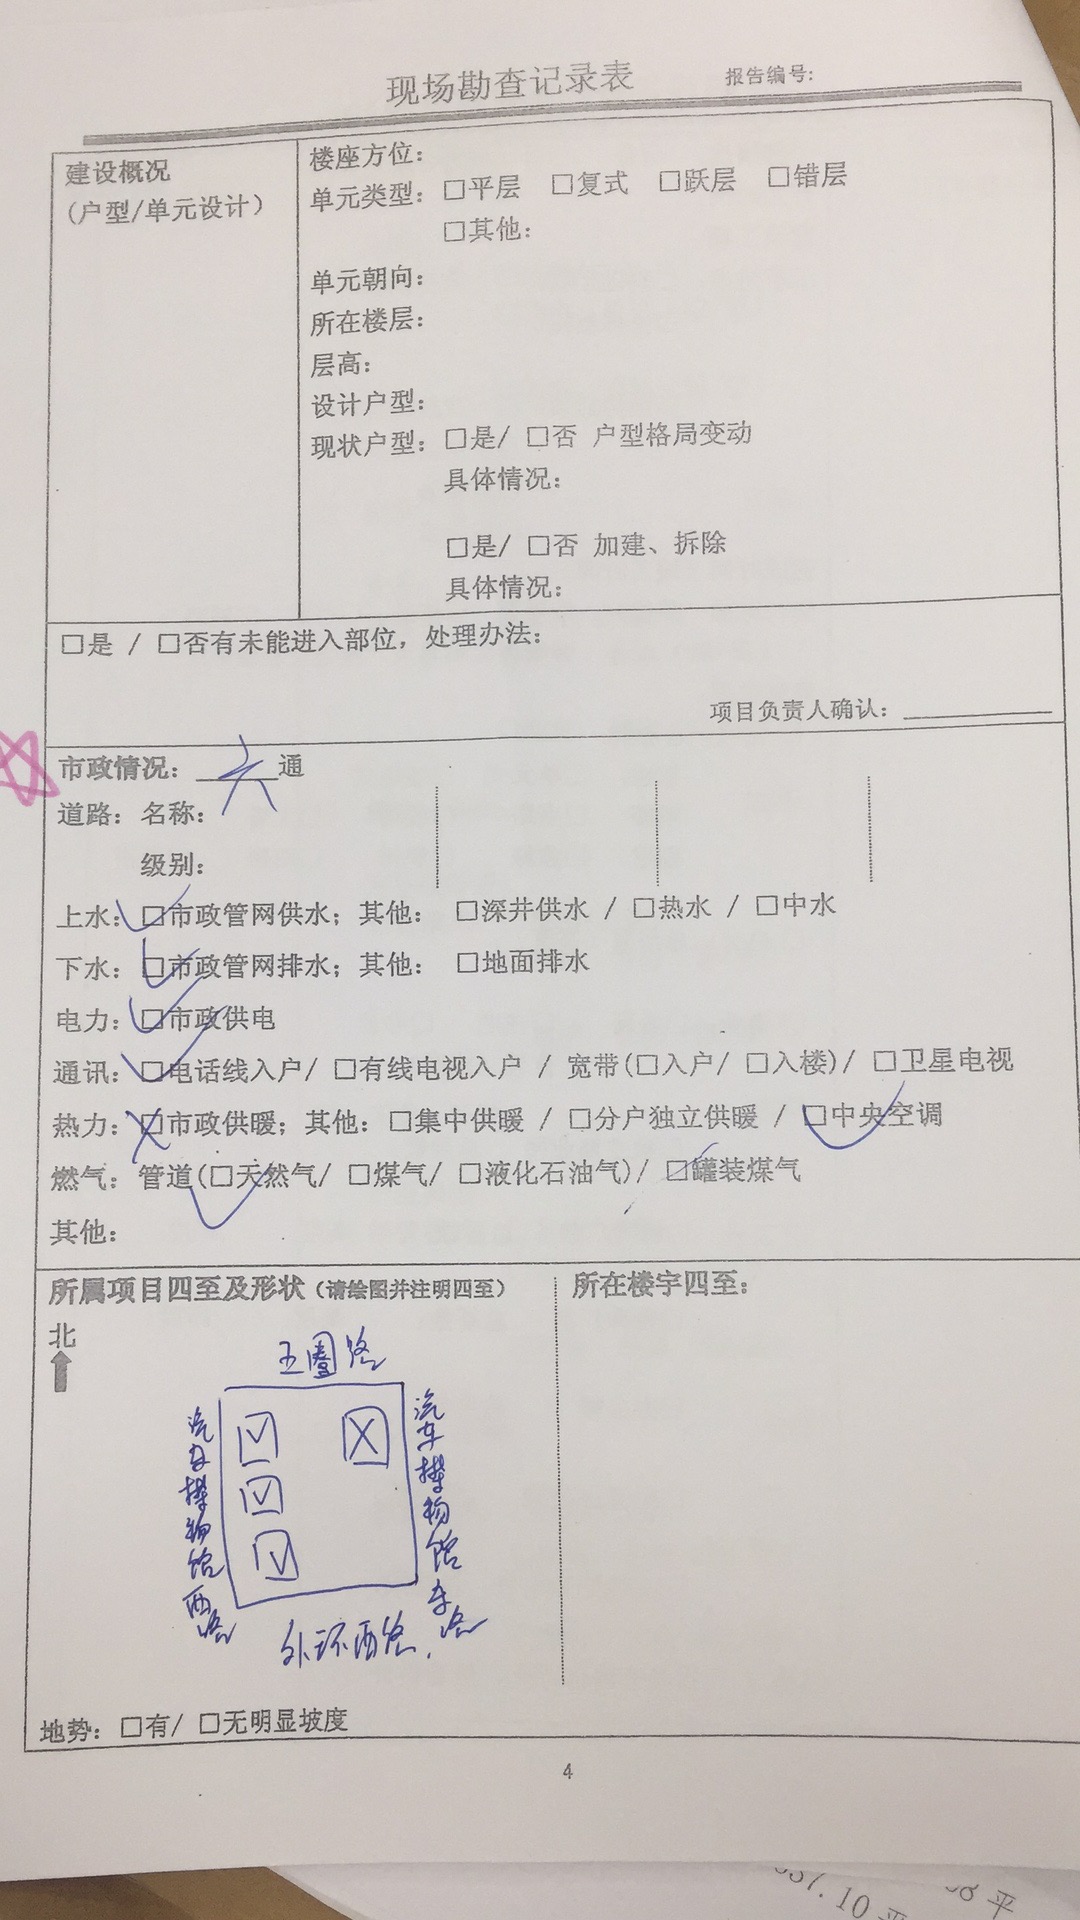 现场勘查记录表 报告编号：
建设概况
（户型/单元设计）
楼座方位：
单元类型：□平层 □复式 □跃层 □错层
□其他：
单元朝向：
所在楼层：
层高：
设计户型：
现状户型：□是/ □否 户型格局变动
具体情况：
□是/ □否 加建、拆除
具体情况：
□是 / □否有未能进入部位，处理办法：
项目负责人确认：
市政情况：六通
道路：名称：
级别：
上水：□市政管网供水；其他： □深井供水 / □热水 / □中水
下水：□市政管网排水；其他： □地面排水
电力：□市政供电
通讯：□电话线入户/ □有线电视入户 / 宽带(□入户/ □入楼)/ □卫星电视
热力：□市政供暖；其他：□集中供暖 / □分户独立供暖 / □中央空调
燃气：管道(□天然气/ □煤气/ □液化石油气)/ □罐装煤气
其他：
所属项目四至及形状（请绘图并注明四至）
北
五圈路
汽车博物馆西路
汽车博物馆东路
外环西路
所在楼宇四至：
地势：□有/ □无明显坡度
4
37.10 平
98 平